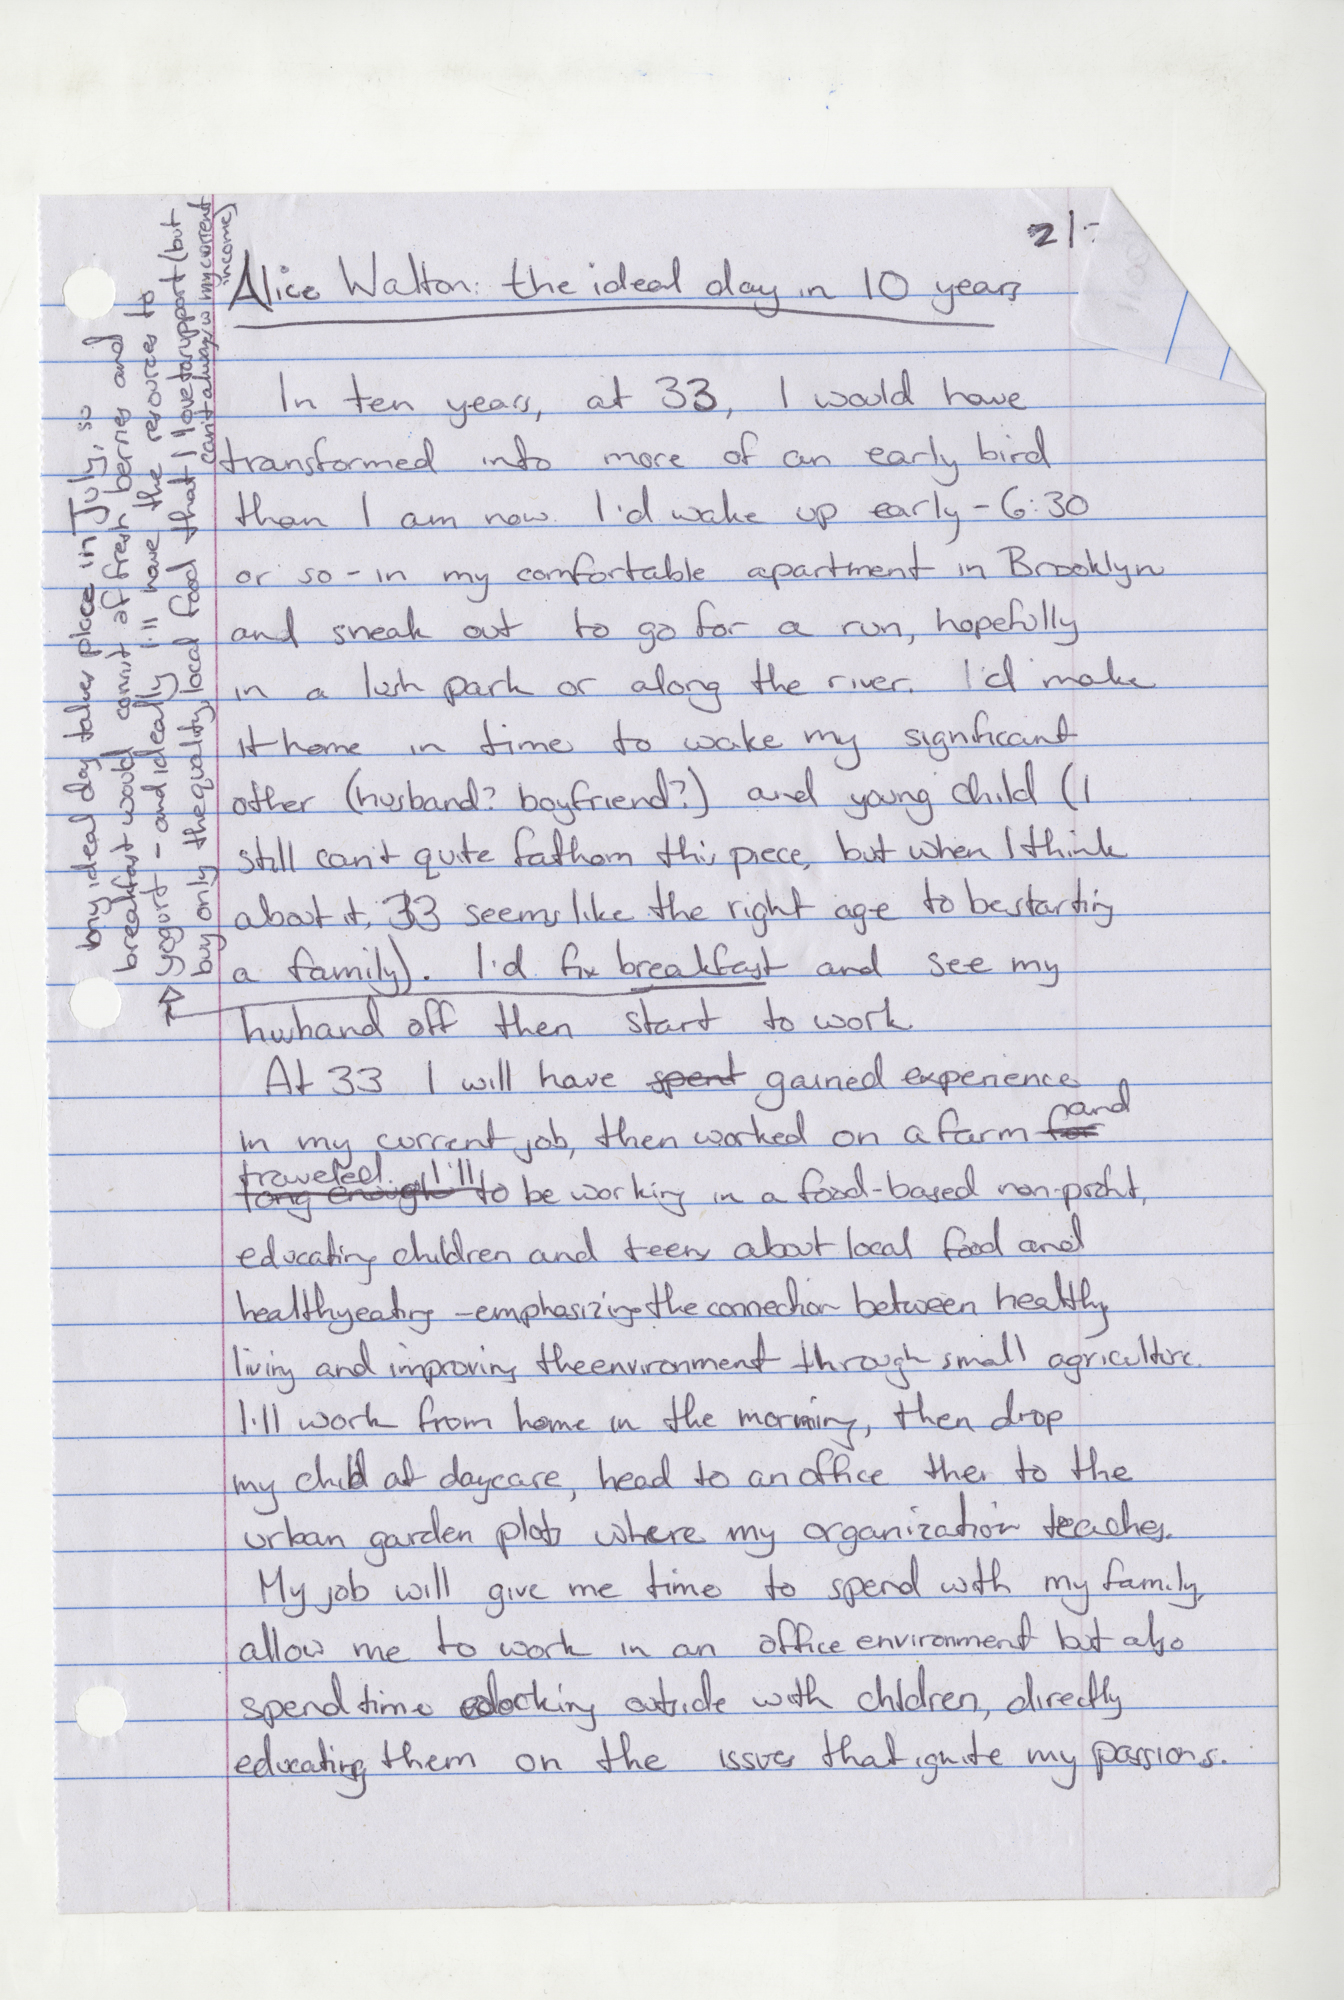 21-
Alice Walton: the ideal day in 10 years
In ten years, at 33, I would have
transformed into more of an early bird
than I am now. I'd wake up early - 6:30
or so - in my comfortable apartment in Brooklyn
and sneak out to go for a run, hopefully
in a lush park or along the river. I'd make
it home in time to wake my significant
other (husband? boyfriend?) and young child (I
still can't quite fathom this piece, but when I think
about it, 33 seems like the right age to be starting
a family). I'd fix breakfast and see my
husband off then start to work
At 33 I will have spent gained experience
in my current job, then worked on a farm for and
traveled. I'll
long enough to be working in a food-based non-profit,
educating children and teens about local food and
healthy eating - emphasizing the connection between healthy
living and improving the environment through small agriculture.
I'll work from home in the morning, then drop
my child at daycare, head to an office then to the
urban garden plots where my organization teaches.
My job will give me time to spend with my family,
allow me to work in an office environment but also
spend time outside with children, directly
educating them on the issues that ignite my passions.
my ideal day takes place in July, so
breakfast would consist of fresh berries and
yogurt - and ideally I'll have the resources to
buy only the quality, local food that I love to support (but
can't always w my current
income)